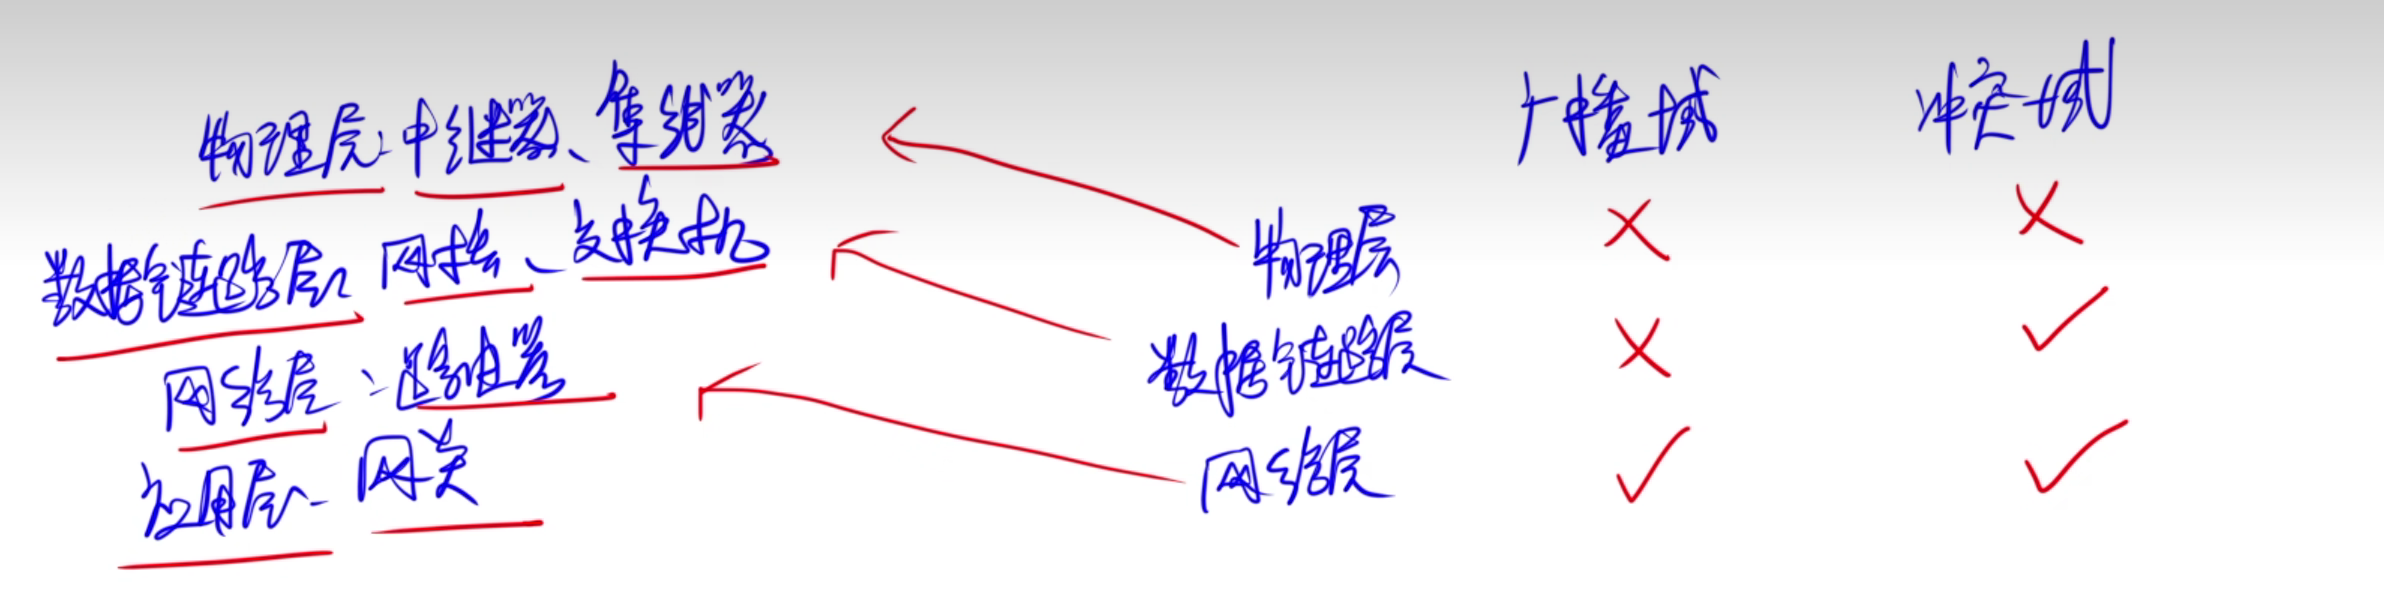 物理层:中继器、集线器
数据链路层:网桥、交换机
网络层:路由器
应用层:网关
广播域 冲突域
物理层 × ×
数据链路层 × ✓
网络层 ✓ ✓